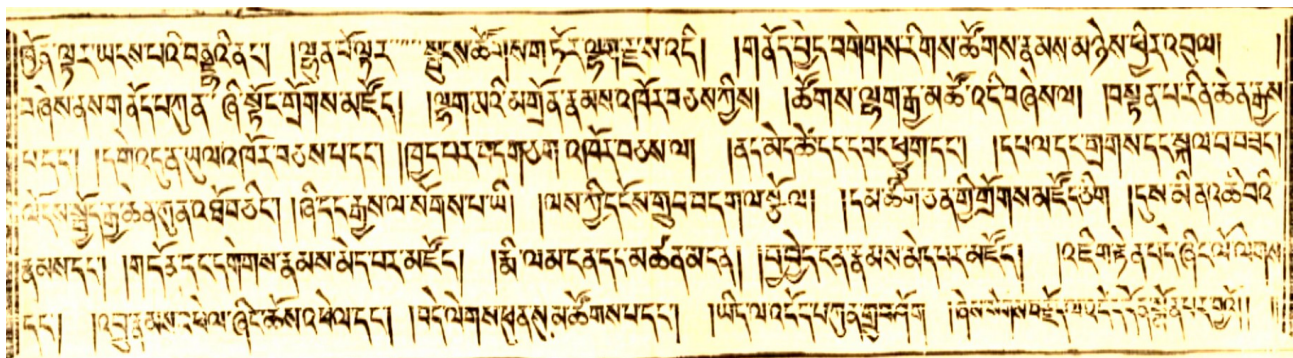 ཕྱོན་ལྟར་ཡངས་པའི་བནྡྷའི་ནང་། །ལྷུན་པོ་ལྟར་སྤུངས་ཚོགས་གཏོར་ལྷག་རྫས་འདི། །གནོད་བྱེད་བགེགས་རིགས་ཚོགས་རྣམས་མཉེས་ཕྱིར་འབུལ། །
བཞེས་ནས་གནོད་པ་ཀུན་ཞི་སྟོང་གྲོགས་མཛོད། །ལྷག་མའི་མགྲོན་རྣམས་འཁོར་བཅས་ཀྱིས། །ཚོགས་ལྷག་རྒྱ་མཚོ་འདི་བཞེས་ལ། །བསྟན་པ་རིན་ཆེན་རྒྱས་
པ་དང་། །དགེ་འདུན་ཡུལ་འཁོར་བཅས་པ་དང་། །ཁྱད་པར་བདག་ཅག་འཁོར་བཅས་ལ། །ནད་མེད་ཚེ་དང་དབང་ཕྱུག་དང་། །དཔལ་དང་གྲགས་དང་སྐལ་བ་བཟང་།
ལོངས་སྤྱོད་རྒྱ་ཆེན་ཀུན་འཐོབ་ཅིང་། །ཞི་དང་རྒྱས་ལ་སོགས་པ་ཡི། །ལས་ཀྱི་དངོས་གྲུབ་བདག་ལ་སྩོལ། །དམ་ཚིག་ཅན་གྱི་གྲོགས་མཛོད་ཅིག །དུས་མིན་འཆི་བའི་
རྣམས་དང་། །གདོན་དང་བགེགས་རྣམས་མེད་པར་མཛོད། །རྨི་ལམ་ངན་དང་མཚན་མ་ངན། །བྱ་བྱེད་ངན་རྣམས་མེད་པར་མཛོད། །འཇིག་རྟེན་བདེ་ཞིང་ལོ་ལེགས་
དང་། །འབྲུ་རྣམས་འཕེལ་ཞིང་ཆོས་འཕེལ་དང་། །བདེ་ལེགས་ཕུན་སུམ་ཚོགས་པ་དང་། །ཡིད་ལ་འདོད་པ་ཀུན་གྲུབ་ཤོག །